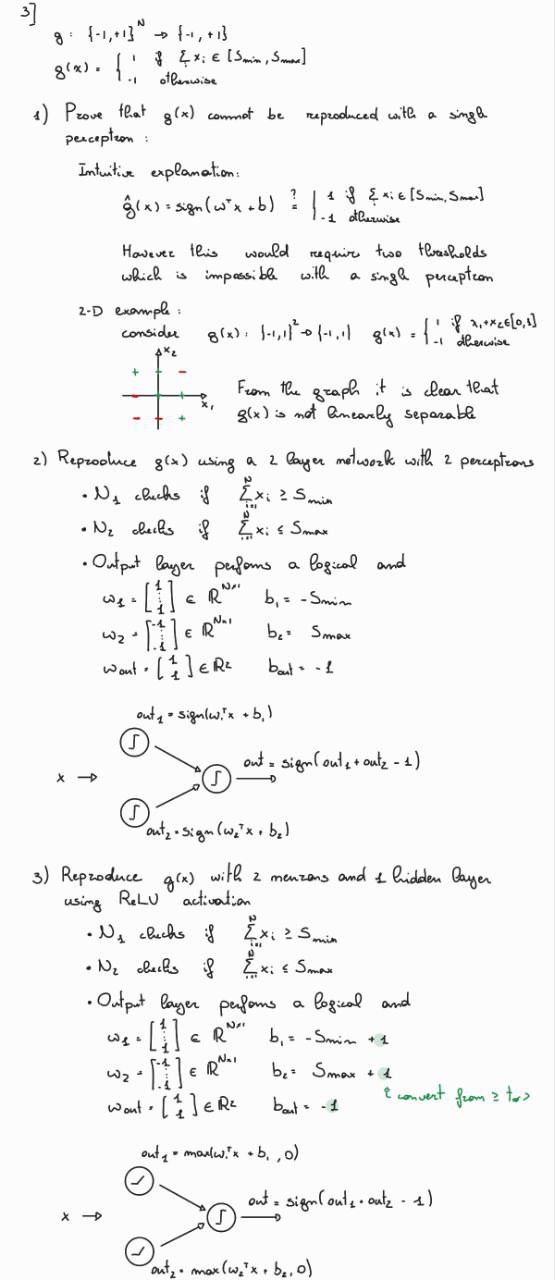 3]
g : {-1,+1}^N → {-1,+1}
g(x) = { 1 if Σxi ∈ [Smin, Smax]
-1 otherwise
1) Prove that g(x) cannot be reproduced with a single
perceptron :
Intuitive explanation:
ĝ(x) = sign(wᵀx + b) ?= | 1 if Σxi ∈ [Smin, Smax]
-1 otherwise
However this would require two thresholds
which is impossible with a single perceptron
2-D example :
consider g(x) : {-1,1}² → {-1,1} g(x) = { 1 if x1+x2∈[0,1]
-1 otherwise
x2
+ + -
- + + x1
- - +
From the graph it is clear that
g(x) is not linearly separable
2) Reproduce g(x) using a 2 layer network with 2 perceptrons
• N1 checks if Σ_{i=1}^N xi ≥ Smin
• N2 checks if Σ_{i=1}^N xi ≤ Smax
• Output layer performs a logical and
w1 = [1 ⋮ 1] ∈ ℝ^{N×1} b1 = -Smin
w2 = [-1 ⋮ -1] ∈ ℝ^{N×1} b2 = Smax
wout = [1 1] ∈ ℝ2 bout = -1
out1 = sign(w1ᵀx + b1)
x → out = sign(out1 + out2 - 1)
out2 = sign(w2ᵀx + b2)
3) Reproduce g(x) with 2 neurons and 1 hidden layer
using ReLU activation
• N1 checks if Σ_{i=1}^N xi ≥ Smin
• N2 checks if Σ_{i=1}^N xi ≤ Smax
• Output layer performs a logical and
w1 = [1 ⋮ 1] ∈ ℝ^{N×1} b1 = -Smin + 1
w2 = [-1 ⋮ -1] ∈ ℝ^{N×1} b2 = Smax + 1
↑ convert from ≥ to >
wout = [1 1] ∈ ℝ2 bout = -1
out1 = max(w1ᵀx + b1, 0)
x → out = sign(out1 · out2 - 1)
out2 = max(w2ᵀx + b2, 0)